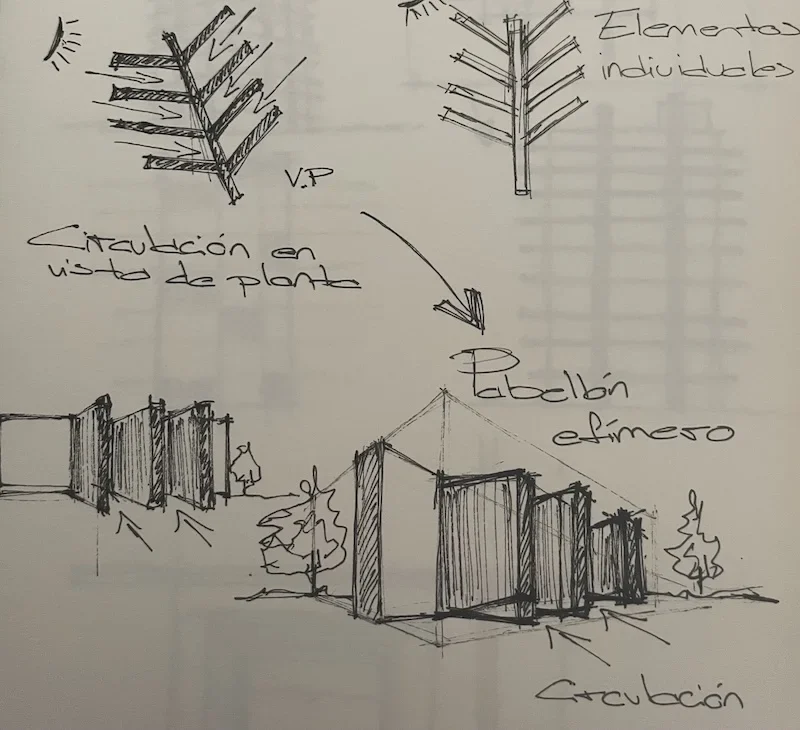 Elementos
individuales
V.P
Circulación en
vista de planta
Pabellón
efímero
Circulación